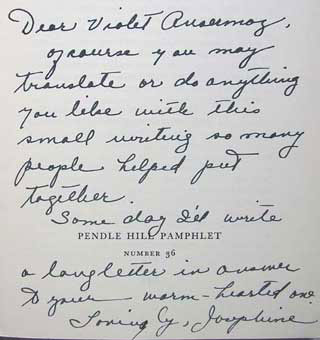 Dear Violet Ansermoz,
of course you may
translate or do anything
you like with this
small writing so many
people helped put
together.
Some day I'll write
PENDLE HILL PAMPHLET
NUMBER 36
a long letter in answer
to your warm-hearted one.
Lovingly, Josephine